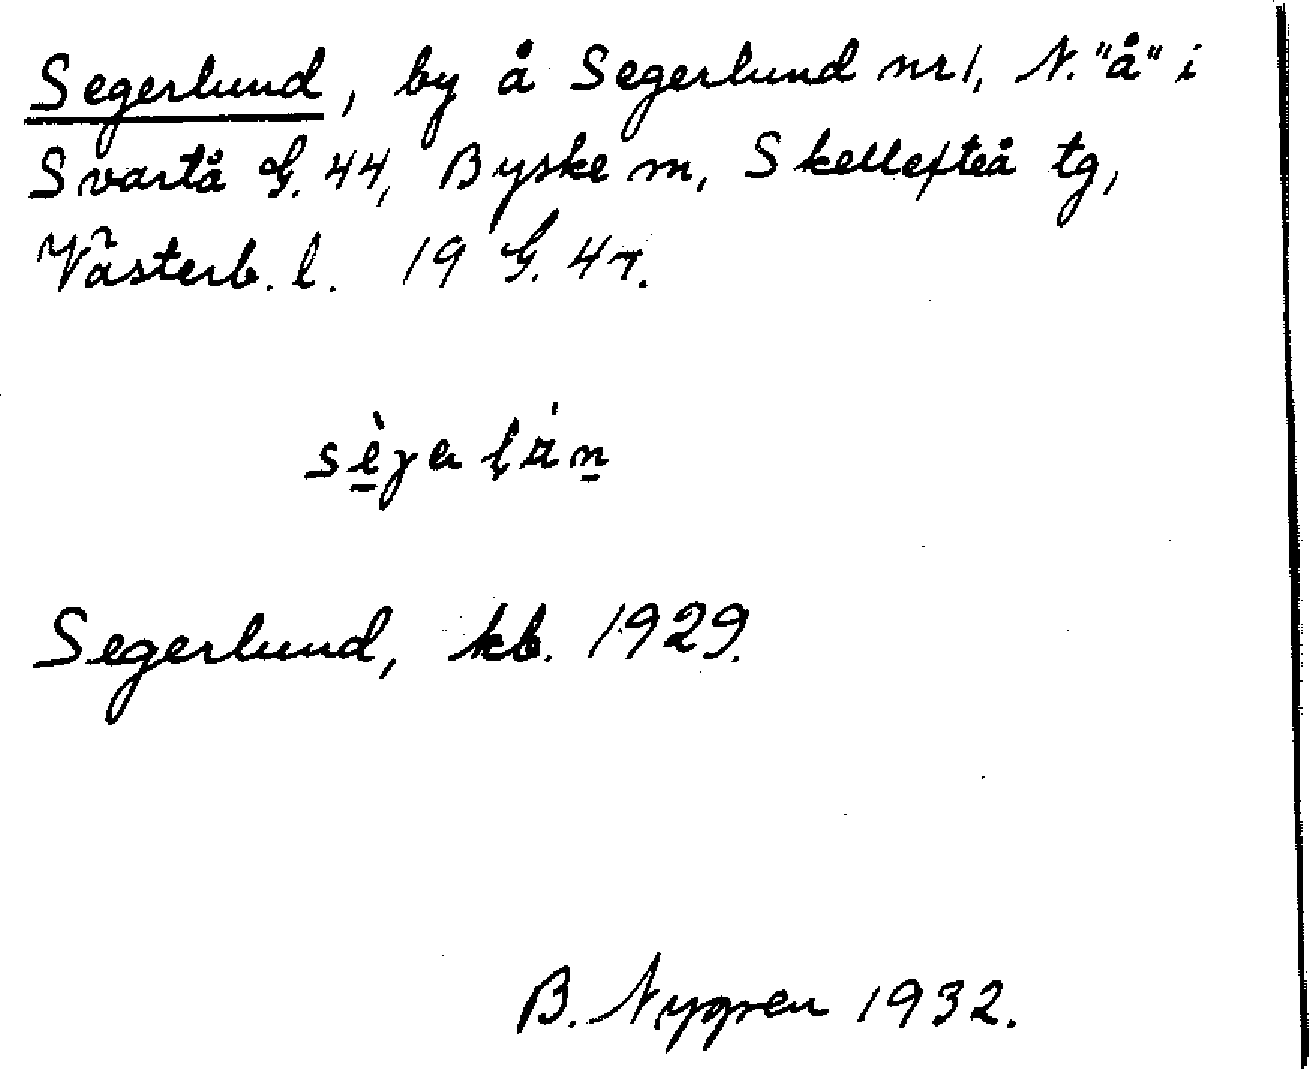 Segerlund, by å Segerlund nr 1, N. "å" i
Svartå G. 44, Byske sn, Skellefteå tg,
Västerb. l. 19 G. 47.
Segerlund, kb. 1929.
B. Nygren 1932.